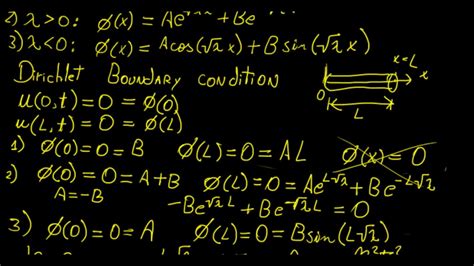 2) λ>0: ø(x) = Ae^{√λx} + Be
3) λ<0: ø(x) = Acos(√λ x) + B sin(√λ x)
Dirichlet Boundary condition
x=L
x
0
L
u(0,t) = 0 = ø(0)
u(L,t) = 0 = ø(L)
1) ø(0) = 0 = B ø(L) = 0 = AL ø(x) = 0
2) ø(0) = 0 = A+B ø(L) = 0 = Ae^{L√λ} + Be^{-L√λ}
A=-B
-Be^{√λL} + Be^{-√λL} = 0
3) ø(0) = 0 = A ø(L) = 0 = B sin(L√λ)